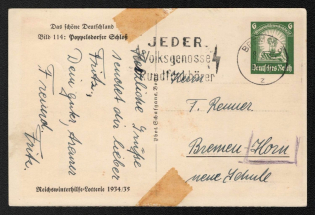 Das schöne Deutschland
Bild 114: Poppelsdorfer Schloß
Herzliche Grüße
sendet dir lieber
Fritz,
Dein guter, treuer
Freund
Fritz.
Reichswinterhilfe-Lotterie 1934/35
JEDER
Volksgenosse
Rundfunkhörer
6 6
Deutsches Reich
F. Renner
Bremen-Horn
neue Schule